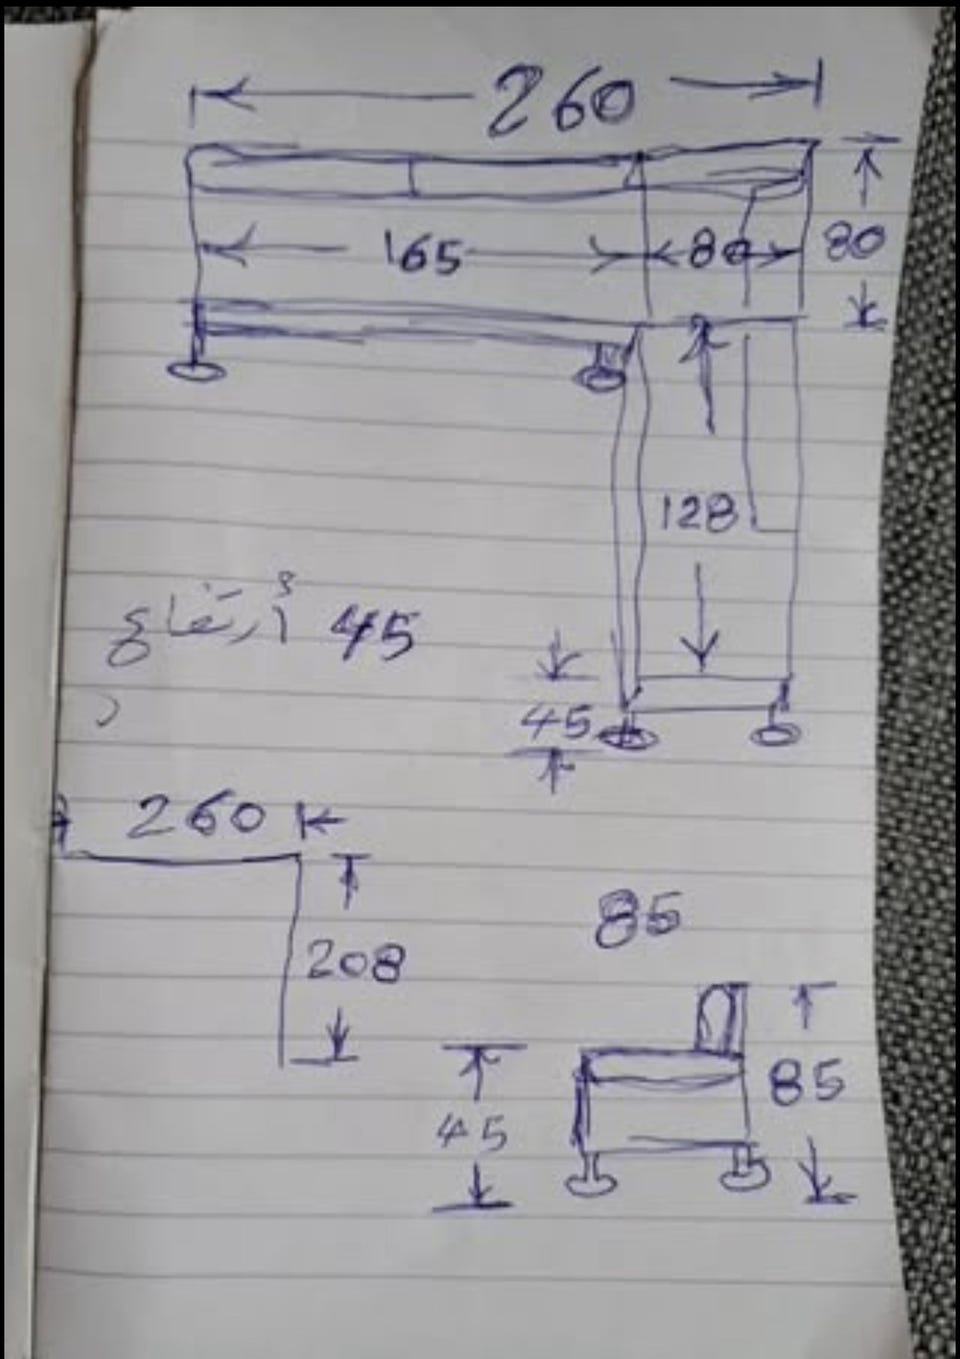 260
165 80 80
128
45 أرتفاع
45
260
208
85
85
45